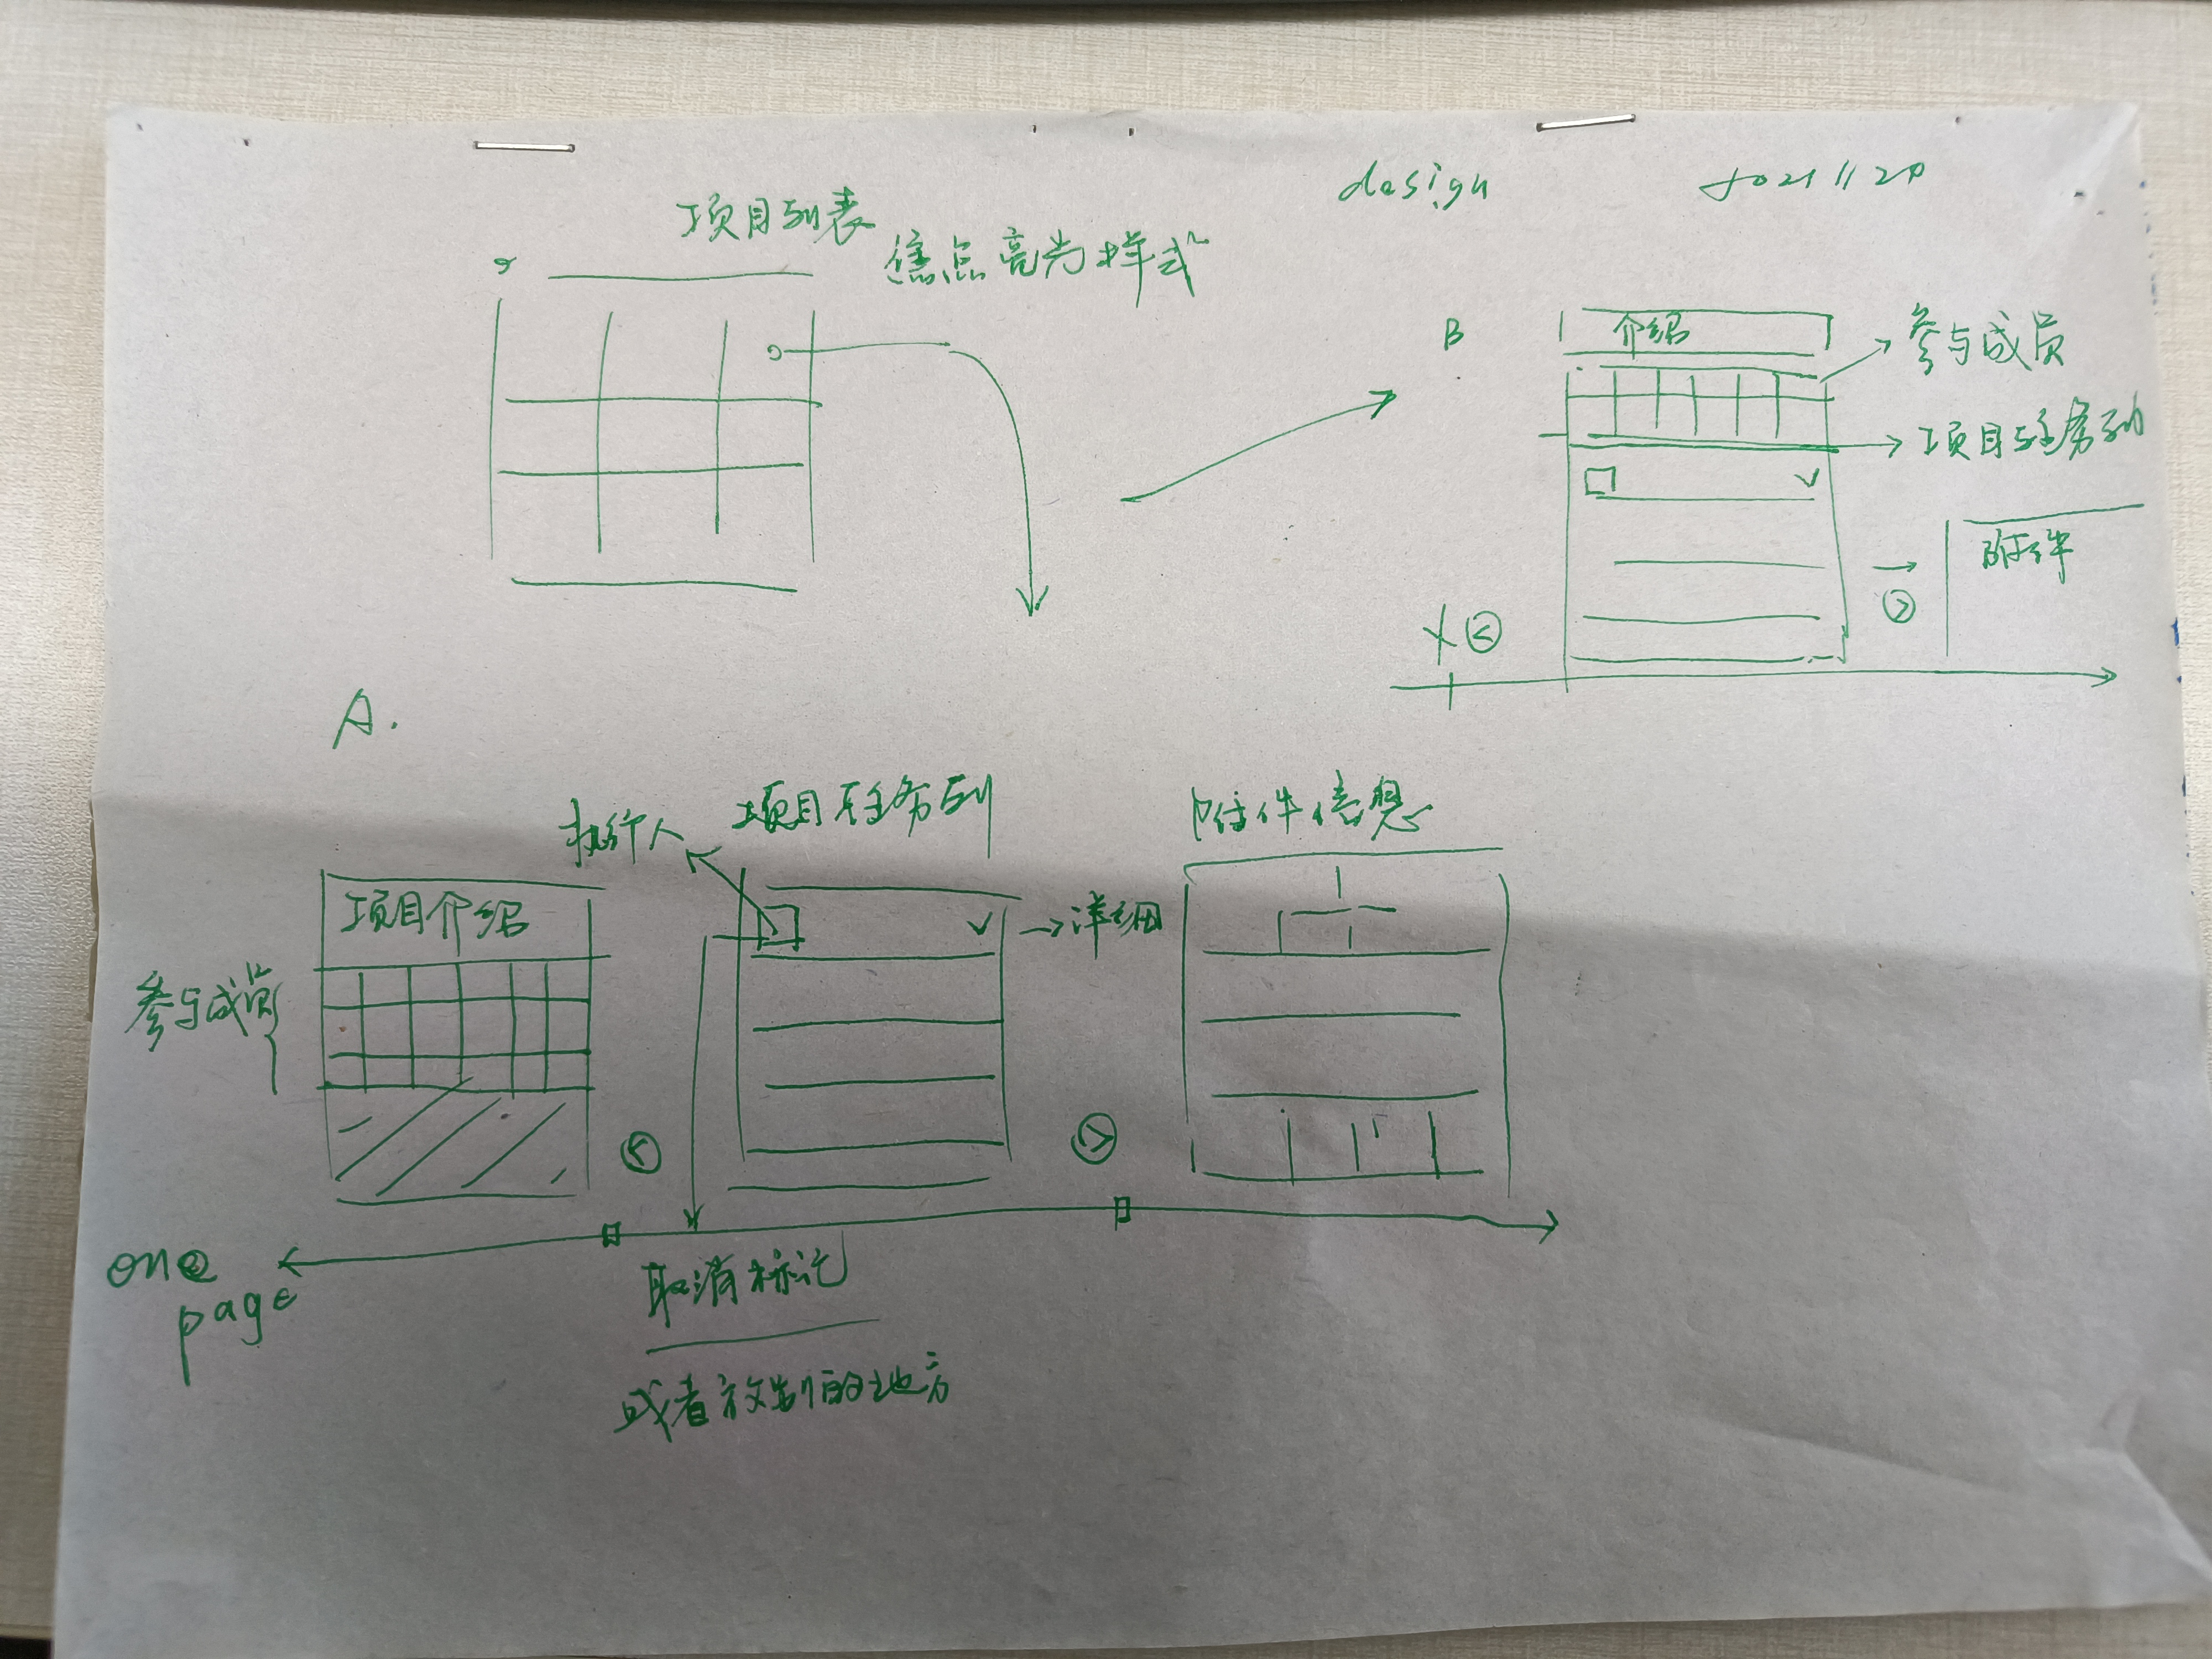 design
项目列表
焦点高光样式
B
介绍
参与成员
项目任务列
附件
A.
执行人
项目任务列
附件信息
项目介绍
→详细
参与成员
one
page
取消标记
或者放制的地方